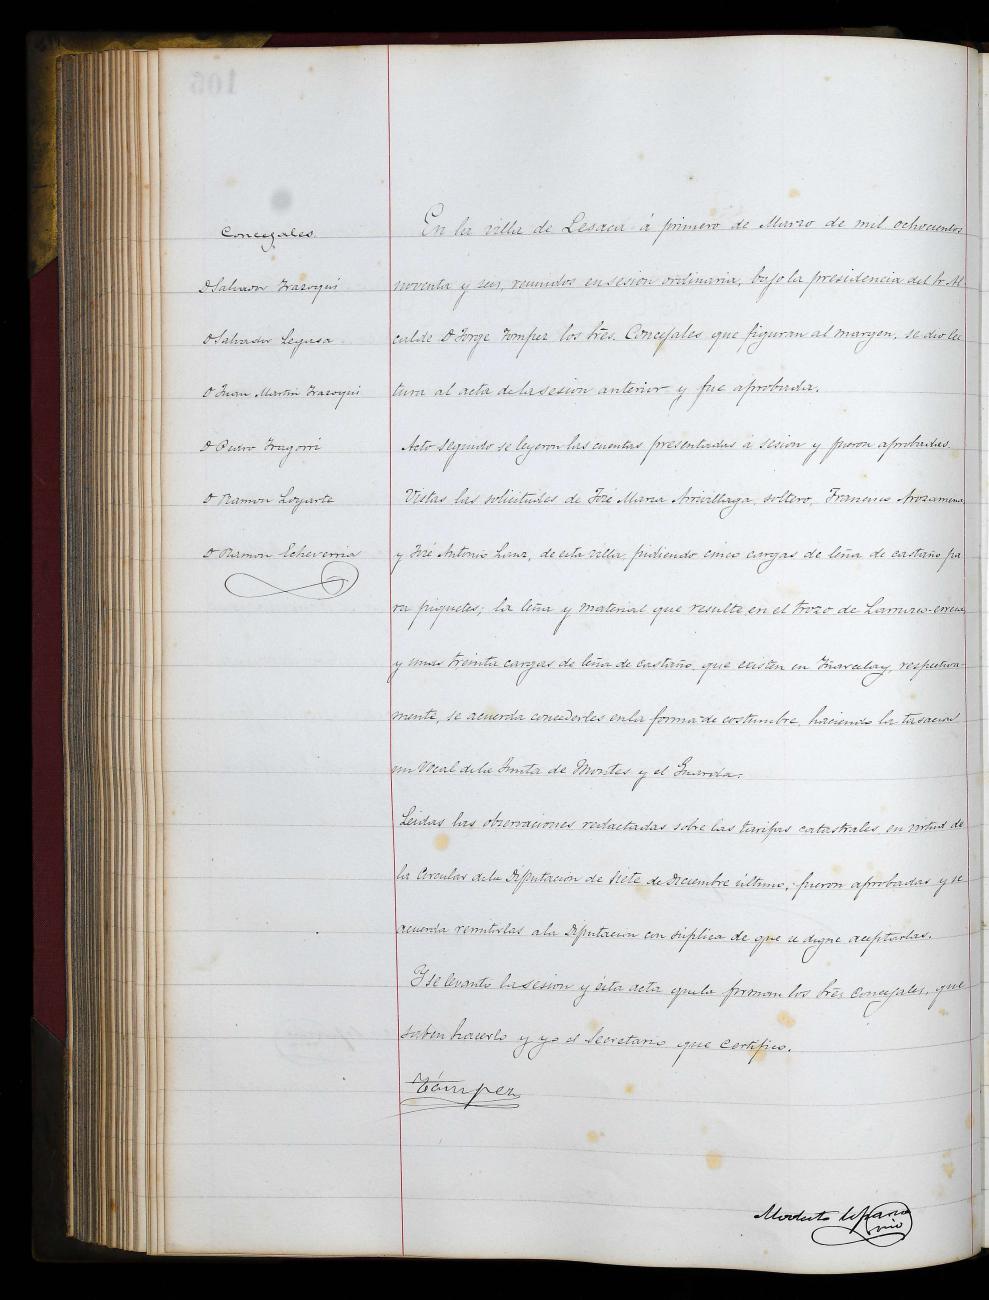 Concejales
D Salvador Irazoqui
D Salvador Legasa
D Juan Martin Irazoqui
D Pedro Iragorri
D Ramon Loyarte
D Ramon Echeverria
En la villa de Lesaca á primero de Marzo de mil ochocientos
noventa y seis, reunidos en sesion ordinaria, bajo la presidencia del Sr. Al
calde D Jorge Tompez los Sres. Concejales que figuran al margen, se dio lec
tura al acta de la sesion anterior y fue aprobada.
Acto seguido se leyeron las cuentas presentadas a sesion y fueron aprobadas.
Vistas las solicitudes de José Maria Arrivillaga, soltero, Francisco Arozamena,
y José Antonio Lanz, de esta villa, pidiendo cinco cargas de leña de castaño pa
ra piquetes; la leña y material que resulte en el trozo de
y unas treinta cargas de leña de castaño, que existen en respectiva
mente, se acuerda concederles en la forma de costumbre, haciendo la tasacion
un Vocal de la Junta de Montes y el Guarda.
Leidas las observaciones redactadas sobre las tarifas catastrales en virtud de
la Circular de la Diputacion de siete de Diciembre último, fueron aprobadas y se
acuerda remitirlas a la Diputacion con súplica de que se digne aceptarlas.
Y se levanto la sesion y ésta acta que la firman los Sres Concejales, que
saben hacerlo y yo el Secretario que certifico.
Tómpez
Modesto
srio
106